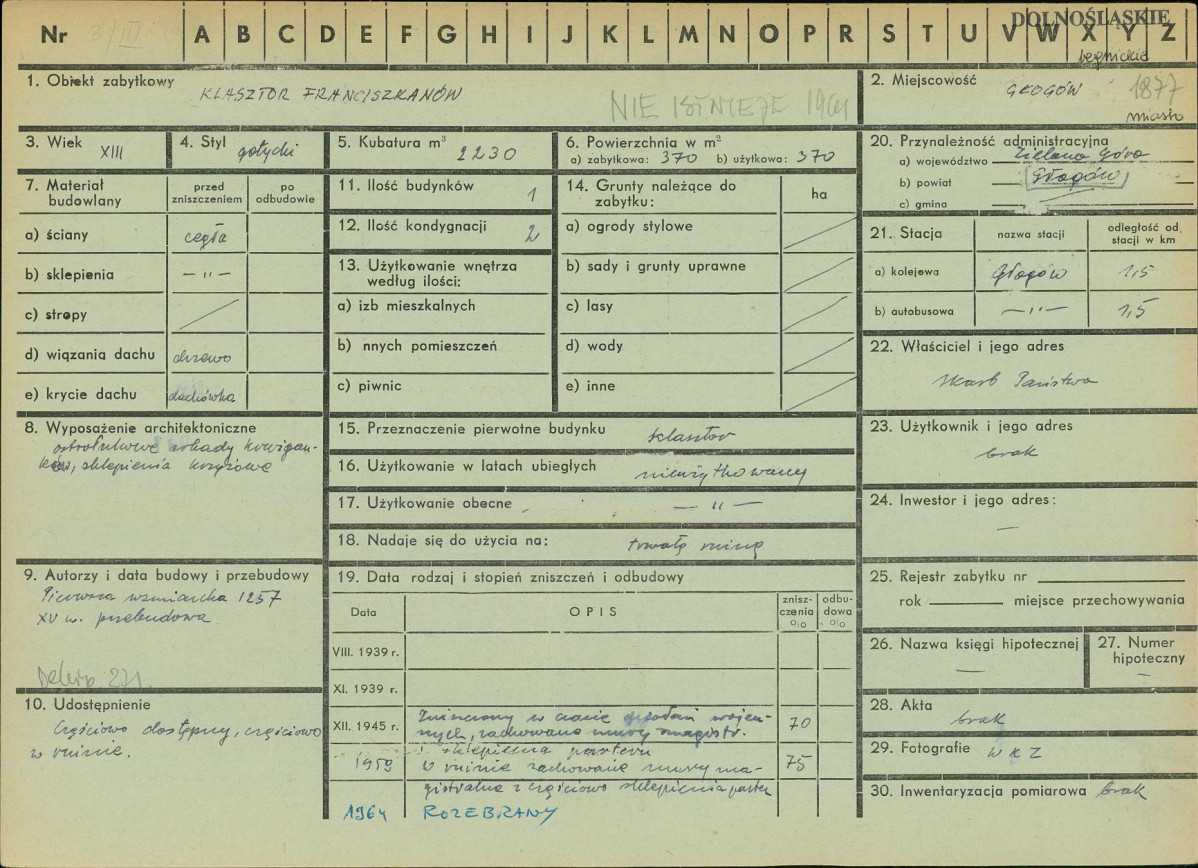 Nr 3/III A B C D E F G H I J K L M N O P R S T U V W X Y Z
DOLNOŚLĄSKIE
legnickie
1. Obiekt zabytkowy
KLASZTOR FRANCISZKANÓW
NIE ISTNIEJE 1964
2. Miejscowość
GŁOGÓW
1877
miasto
3. Wiek XIII
4. Styl gotycki
5. Kubatura m³ 2230
6. Powierzchnia w m²
a) zabytkowa: 370 b) użytkowa: 370
20. Przynależność administracyjna
a) województwo Zielona Góra
b) powiat Głogów
c) gmina
7. Materiał budowlany
przed zniszczeniem
po odbudowie
a) ściany cegła
b) sklepienia —"—
c) stropy
d) wiązania dachu drzewo
e) krycie dachu dachówka
11. Ilość budynków 1
12. Ilość kondygnacji 2
13. Użytkowanie wnętrza
według ilości:
a) izb mieszkalnych
b) nnych pomieszczeń
c) piwnic
14. Grunty należące do
zabytku:
ha
a) ogrody stylowe
b) sady i grunty uprawne
c) lasy
d) wody
e) inne
21. Stacja
nazwa stacji
odległość od
stacji w km
a) kolejowa Głogów 1,5
b) autobusowa —"— 1,5
22. Właściciel i jego adres
Skarb Państwa
8. Wyposażenie architektoniczne
ostrołukowe arkady krużgan-
ków, sklepienia krzyżowe
15. Przeznaczenie pierwotne budynku klasztor
16. Użytkowanie w latach ubiegłych nieużytkowany
17. Użytkowanie obecne —"—
18. Nadaje się do użycia na: trwałą ruinę
23. Użytkownik i jego adres
brak
24. Inwestor i jego adres:
—
9. Autorzy i data budowy i przebudowy
Pierwsza wzmianka 1257
XV w. przebudowa
Dehio 271.
19. Data rodzaj i stopień zniszczeń i odbudowy
Data
OPIS
znisz-
czenia
o/o
odbu-
dowa
o/o
VIII. 1939 r.
XI. 1939 r.
XII. 1945 r. Zniszczony w czasie działań wojen-
nych, zachowane mury magistr. 70
i sklepienia parteru
1959 w ruinie zachowane mury ma- 75
gistralne i częściowo sklepienia parter
1964 ROZEBRANY
25. Rejestr zabytku nr
rok miejsce przechowywania
26. Nazwa księgi hipotecznej
—
27. Numer
hipoteczny
—
10. Udostępnienie
Częściowo dostępny, częściowo
w ruinie.
28. Akta brak
29. Fotografie WKZ
30. Inwentaryzacja pomiarowa brak